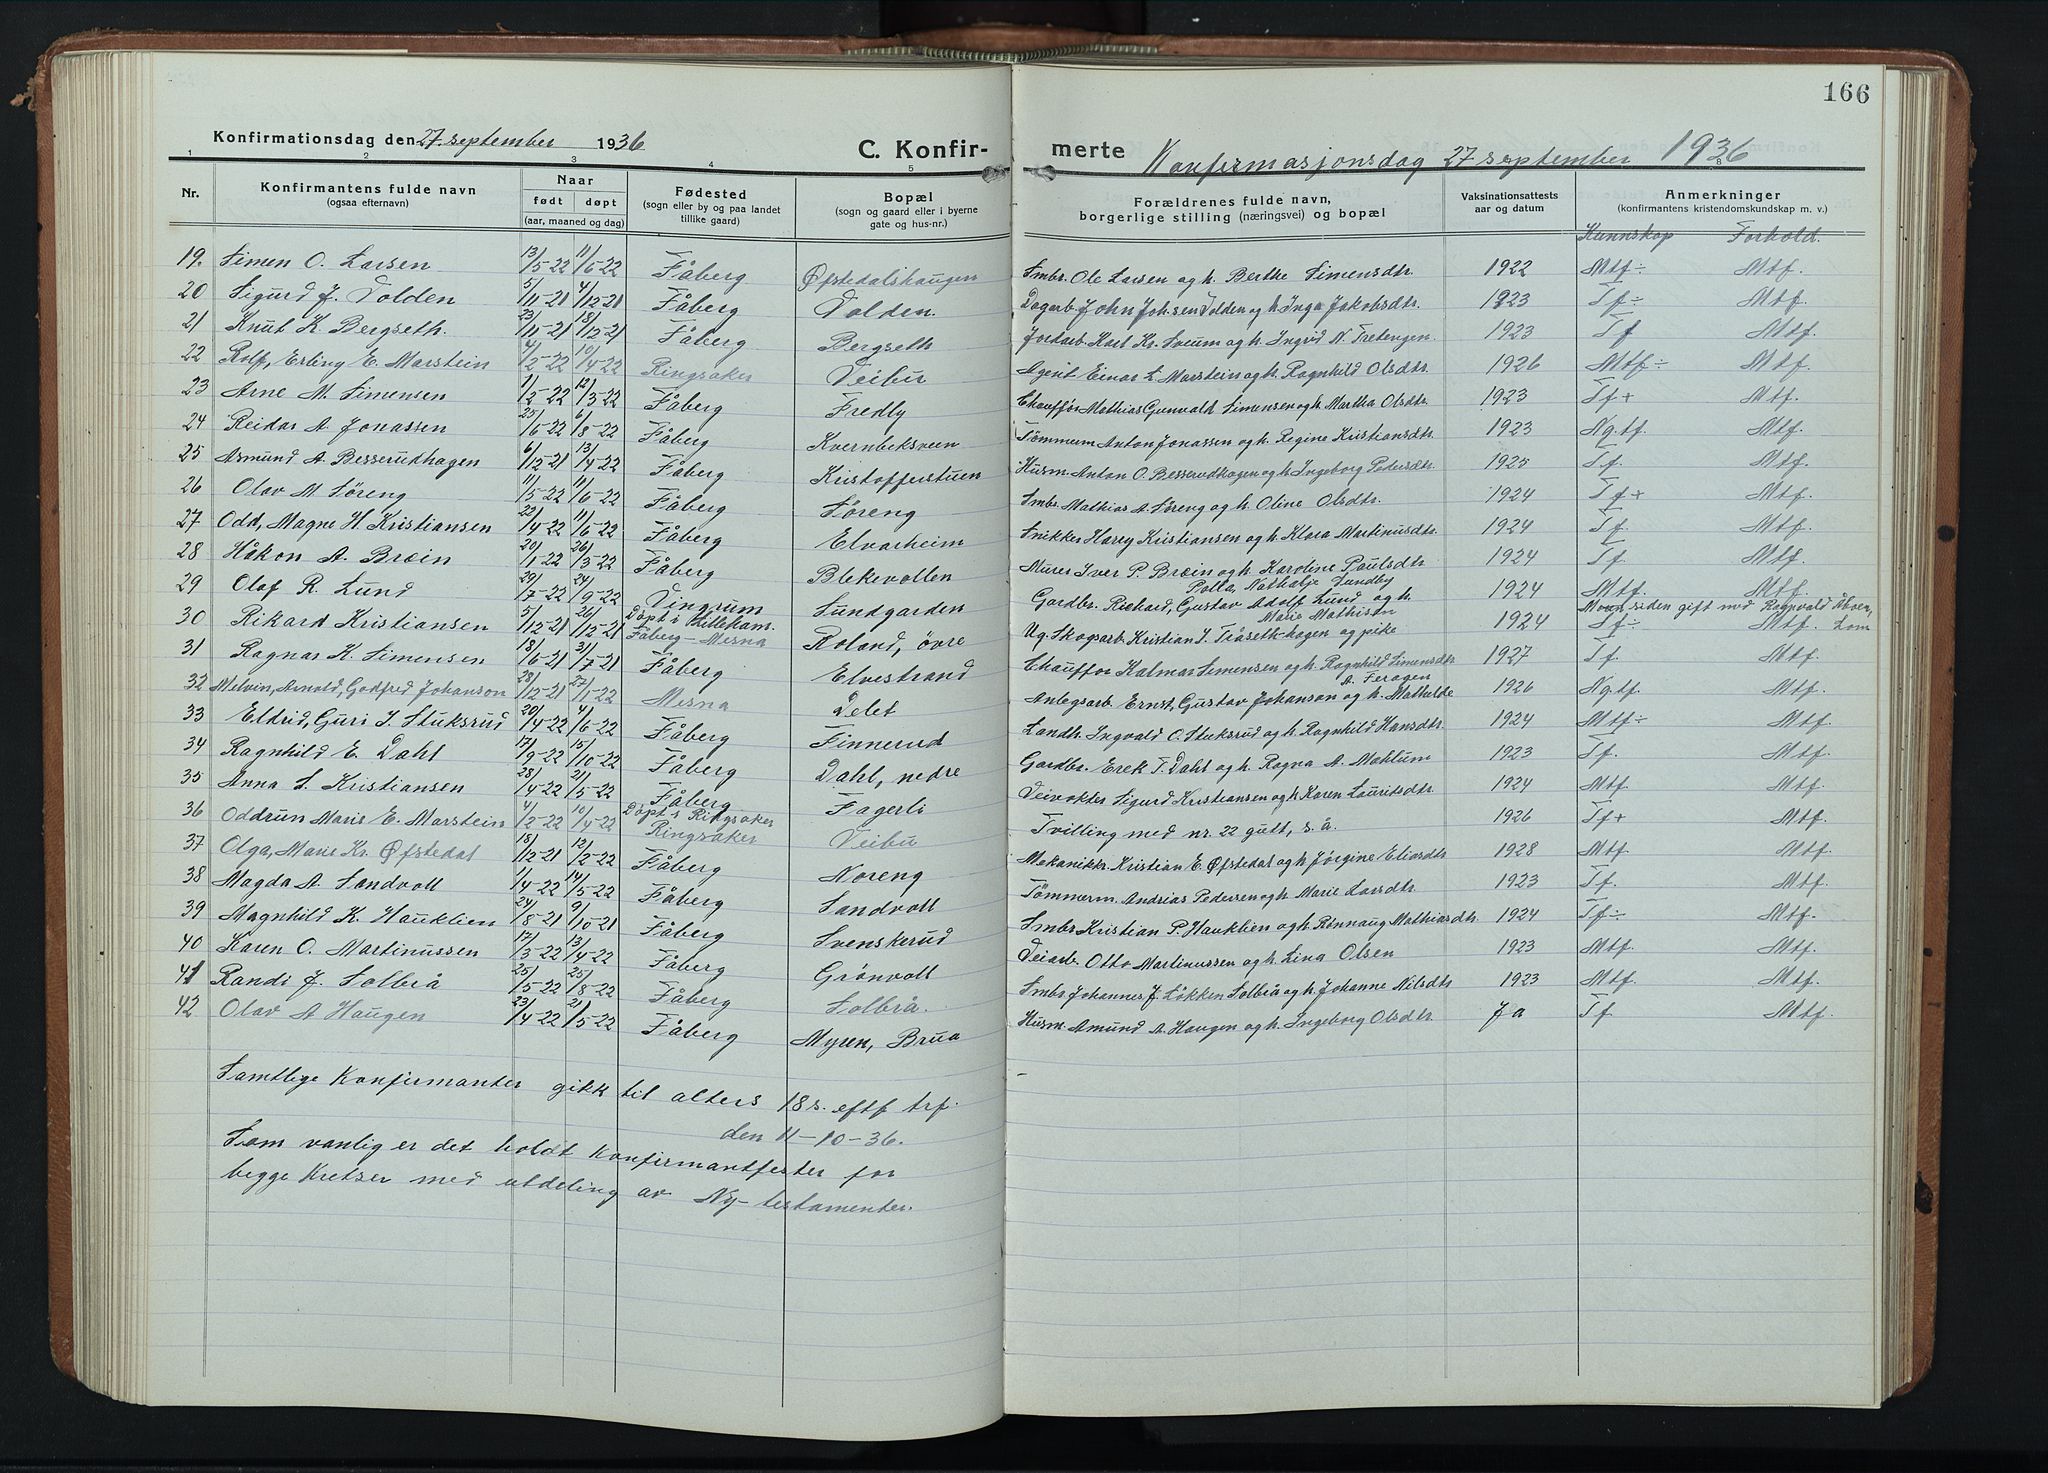 166
Konfirmationsdag den 27. september 1936
C. Konfirmerte
Konfirmasjonsdag 27 september 1936
1 2 3 4 5 8
Nr. Konfirmantens fulde navn (ogsaa efternavn) Naar født døpt (aar, maaned og dag) Fødested (sogn eller by og paa landet tillike gaard) Bopæl (sogn og gaard eller i byerne gate og hus-nr.) Forældrenes fulde navn, borgerlige stilling (næringsvei) og bopæl Vaksinationsattests aar og datum Anmerkninger (konfirmantens kristendomskundskap m. v.)
Kunnskap Forhold.
19. Simen O. Larsen 13/5-22 11/6-22 Fåberg Øfstedalshaugen Smbr. Ole Larsen og h. Berthe Simensdtr. 1922 Mtf÷ Mtf.
20 Sigurd J. Volden 5/11-21 4/12-21 Fåberg Volden. Dagarb. John Johsen Volden og h. Inga Jakobsdtr. 1923 Tf÷ Mtf.
21 Knut K. Bergseth. 23/11-21 18/12-21 Fåberg Bergseth Jordarb. Karl Kr. Sveum og h. Ingrid N. Tretengen. 1923 Tf Mtf.
22 Rolf, Erling E. Marstein 4/2-22 10/4-22 Ringsaker Veibu Agent Einar E. Marstein og h. Ragnhild Olsdtr. 1926 Mtf÷ Mtf.
23 Arne M. Simensen 1/2-22 12/3-22 Fåberg Fredly Chauffør Mathias Gunvald Simensen og h. Martha Olsdtr. 1923 Tf+ Mtf.
24 Reidar A. Jonassen 25/6-22 6/8-22 Fåberg Kvernbeksveen Tømmerm Anton Jonassen og h. Regine Kristiansdtr. 1923 Ng.tf. Mtf.
25 Asmund A. Besserudhagen 6/12-21 13/4-22 Fåberg Kristofferstuen Husm. Anton O. Besserudhagen og h. Ingeborg Pedersdtr. 1925 Tf. Mtf.
26 Olav M. Søreng 11/5-22 10/6-22 Fåberg Søreng Smbr. Mathias A. Søreng og h. Oline Olsdtr. 1924 Tf+ Mtf.
27 Odd, Magne H. Kristiansen 22/4-22 11/6-22 Fåberg Elvarheim Snikker Harry Kristiansen og h. Klara Martinusdtr. 1924 Tf. Mtf.
28 Håkon A. Bræin 20/1-22 26/3-22 Fåberg Blekevollen Murer Iver P. Bræin og h. Karoline Paulsdtr 1924 Tf. Mtf.
29 Olaf R. Lund 29/7-22 24/9-22 Vingrum Lundgarden Gardbr. Richard, Gustav Adolf Lund og h. Nathalje Lundby 1924 Mtf. Mtf.
30 Rikard Kristiansen 5/12-21 26/12-21 Døpt i Lilleham. Fåberg-Mesna Roland, øvre Ug. Skogsarb. Kristian J. Tråseth-hagen og pike Marie Mathisen 1924 Tf÷ Mtf.
Moren siden gift med Ragnvald Åboen, Lom
31 Ragnar K. Simensen 18/6-21 31/7-21 Fåberg Elvestrand Chauffør Kalmar Simensen og h. Ragnhild Simensdtr 1927 Tf. Mtf.
32 Melvin, Arnold, Godfred Johanson 28/12-21 27/1-22 Mesna Delet Anlegsarb. Ernst, Gustav Johanson og h. Mathilde A. Feragen 1926 Ng.tf. Mtf.
33 Eldrid, Guri I. Stuksrud 20/4-22 4/6-22 Fåberg Finnerud Landh. Ingvald O. Stuksrud og h. Ragnhild Hansdtr. 1924 Mtf÷ Mtf.
34 Ragnhild E. Dahl 17/9-22 15/10-22 Fåberg Dahl, nedre Gardbr. Erek T. Dahl og h. Ragna A. Mæhlum 1923 Tf. Mtf.
35 Anna S. Kristiansen 28/4-22 21/5-22 Fåberg Fagerli Veivokter Sigurd Kristiansen og h. Karen Lauritsdtr. 1924 Mtf. Mtf.
36 Oddrun Marie E. Marstein 4/2-22 10/4-22 Døpt i Ringsaker Ringsaker Veibu Tvilling med nr. 22 gutt, s. å. 1926 Tf+ Mtf.
37 Olga, Marie Kr. Øfstedal 18/12-21 12/2-22 Fåberg Noreng Mekanikkr. Kristian E. Øfstedal og h. Jørgine Eliasdtr 1928 Mtf. Mtf.
38 Magda A. Sandvoll 1/4-22 14/5-22 Fåberg Sandvoll Tømmerm. Andrias Pedersen og h. Marie Larsdtr. 1923 Tf. Mtf.
39 Magnhild K. Hauklien 24/8-21 9/10-21 Fåberg Svenskerud Smbr Kristian P. Hauklien og h. Rønnaug Mathiasdtr. 1924 Tf÷ Mtf.
40 Karen O. Martinussen 17/3-22 13/4-22 Fåberg Grønvoll Veiarb. Otto Martinussen og h. Lina Olsen 1923 Mtf. Mtf.
41 Randi J. Solbrå 25/5-22 25/8-22 Fåberg Solbrå. Smbr Johannes J. Løkken Solbrå og h. Johanne Nilsdtr 1923 Mtf. Mtf.
42 Olav A Haugen 23/4-22 21/5-22 Fåberg Myren, Brua Husm. Amund A. Haugen og h. Ingeborg Olsdtr. Ja Tf Mtf.
Samtlige konfirmanter gikk til alters 18 s. eftf trf.
den 11-10-36.
Som vanlig er det holdt konfirmantfester for
begge kretser med utdeling av Ny-testamenter.